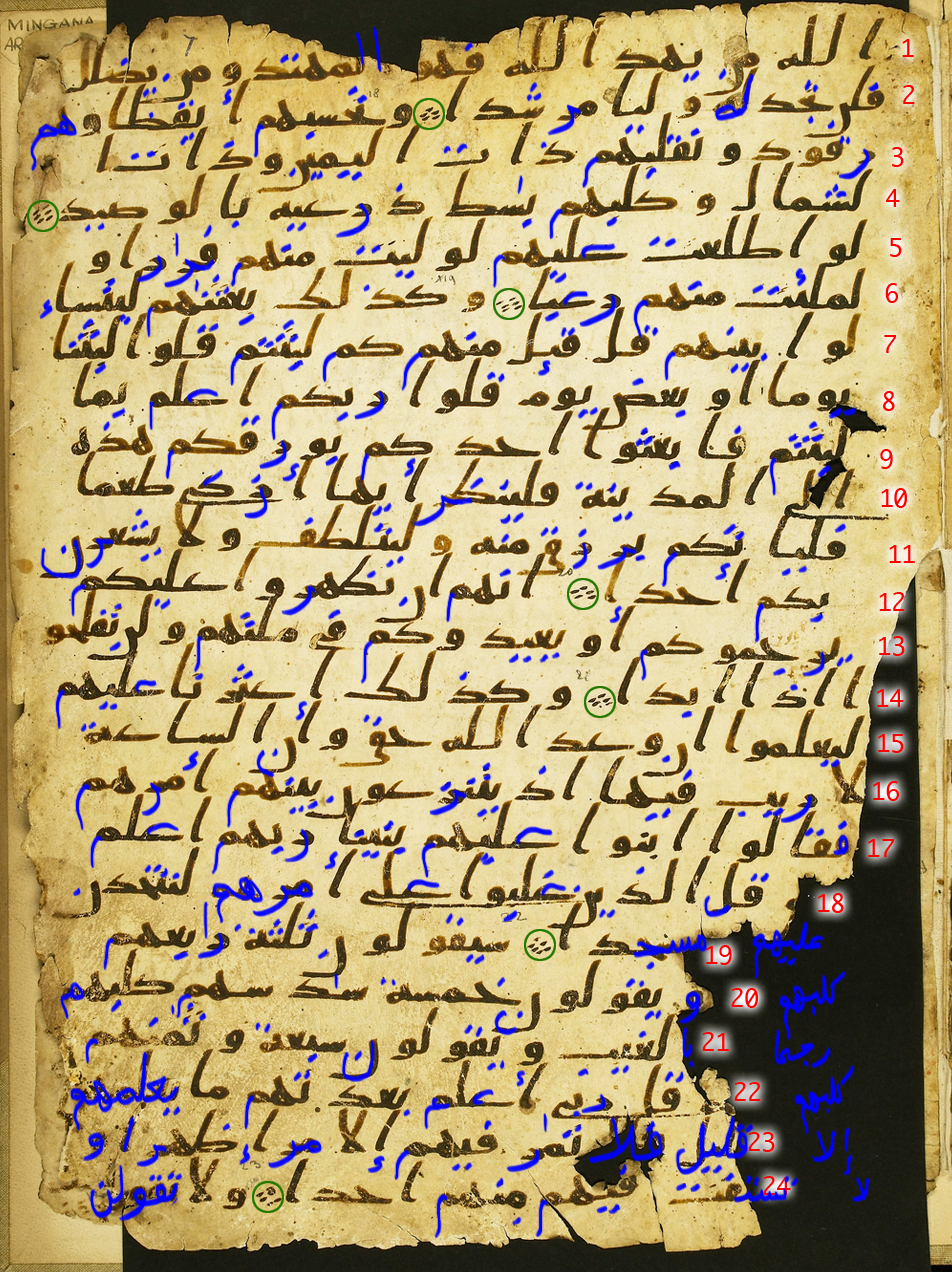 MINGANA
AR
7
ا الله من يهد الله فهو المهتد و من يضلل 1
فلن تجد له و ليا مر شدا و تحسبهم أيقظا وهم 2
رقود و نقلبهم ذات اليمين و ذات ا 3
لشمال و كلبهم بسط ذرعيه با لو صيد 4
لو اطلعت عليهم لو ليت منهم فرارا و 5
لملئت منهم رعبا و كذ لك بعثنهم ليتساء 6
لو ا بينهم قل قيل منهم كم لبثتم قلوا لبثنا 7
يوما أو بعض يوم قلوا ربكم أعلم بما 8
لبثتم فا بعثوا احد كم بو رقكم هذه 9
الى المد ينة فلينظر أيها أزكى طعما 10
فليا تكم بر زق منه و ليتلطف و لا يشعرن 11
بكم أحدا انهم ان يظهر وا عليكم 12
ير جمو كم أو يعيد وكم في ملتهم و لن تفلحو 13
ا اذا ا بدا و كذ لك ا عثر نا عليهم 14
ليعلموا أن وعد الله حق و أن الساعة 15
لا ريب فيها اذ يتنزعون بينهم أمرهم 16
فقا لوا ابنوا عليهم بنينا ربهم أعلم 17
قل الذين غلبوا على أمرهم لنتخذن 18
عليهم مسجدا سيقو لون ثلثة رابعهم 19
كلبهم و يقو لون خمسة سدسهم كلبهم 20
رجما با لغيب و يقو لون سبعة و ثمنهم 21
كلبهم قل ربي أعلم بعد تهم ما يعلمهم 22
إلا قليل فلا تمار فيهم إلا مراء ظهرا و 23
لا تستفت فيهم منهم احدا و لا تقولن 24